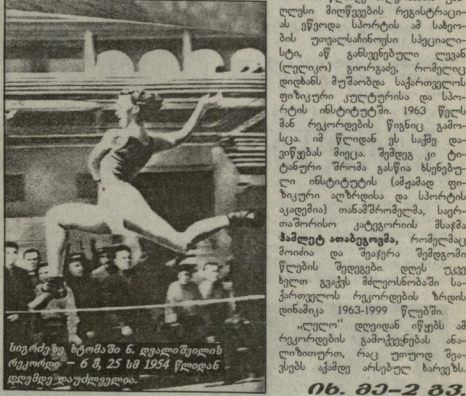 სიგრძეზე ხტომაში ნ. დვალიშვილის
რეკორდი – 6 მ, 25 სმ 1954 წლიდან
დღემდე დაუძლეველია.
დღესი მიღწევების რეგისტრაცი-
ას ეწეოდა სპორტის ამ სახეო-
ბის უთვალსაჩინოესი სპეციალი-
სტი, აწ განსვენებული ლევან
(ლელიკო) გიორგაძე, რომელიც
დიდხანს მუშაობდა საქართველოს
ფიზიკური კულტურისა და სპო-
რტის ინსტიტუტში. 1963 წელს
მან რეკორდების წიგნიც გამო-
სცა. იმ წლიდან ეს საქმე და-
ვიწყებას მიეცა. შემდეგ კი ტი-
ტანური შრომა გასწია ხსენებუ-
ლი ინსტიტუტის (ამჟამად ფი-
ზიკური აღზრდისა და სპორტის
აკადემია) თანამშრომელმა, საერ-
თაშორისო კატეგორიის მსაჯმა
ჰამლეტ ათაბეგოვმა, რომელმაც
მოიძია და შეაჯერა შემდგომი
წლების შედეგები. დღეს უკვე
ხელთ გვაქვს მძლეოსნობაში სა-
ქართველოს რეკორდების ზრდის
დინამიკა 1963-1999 წლებში.
„ლელო“ დღეიდან იწყებს ამ
რეკორდების გამოქვეყნებას ანა-
ლიზითურთ, რაც უთუოდ შეა-
ვსებს აქამდე არსებულ ხარვეზს.
იხ. მე–2 გვ.